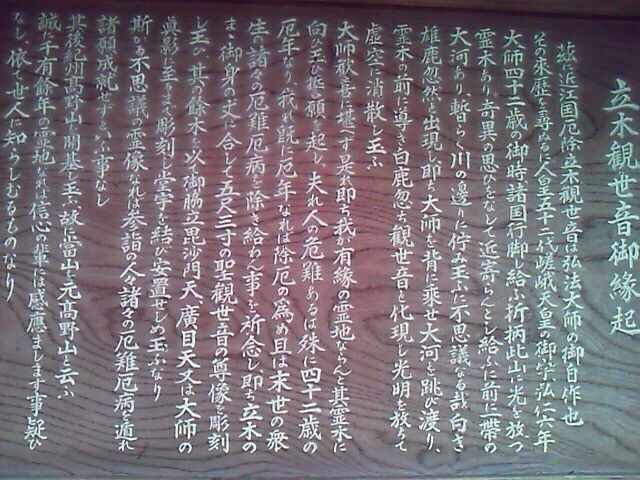 立木觀世音御縁起
茲に近江国厄除立木觀世音は弘法大師の御自作也
その來歴を尋ぬるに人皇五十二代嵯峨天皇の御宇弘仁六年
大師四十二歳の御時諸国行脚し給ふ折柄此山に光を放つ
霊木あり奇異の思ひをなし近寄らんとし給ふに前に一帯の
大河あり暫らく川の邊りに佇み玉ふに不思議なる哉白き
雄鹿忽然と出現し即ち大師を背に乗せ大河を跳び渡り、
霊木の前に導き白鹿忽ち觀世音と化現し光明を放ちて
虚空に消散し玉ふ
大師歓喜に堪へず是れ即ち我が有縁の霊地ならんと其霊木に
向ひ玉ひ誓願を起し夫れ人の危難あるは殊に四十二歳の
厄年なり我れ既に厄年なれば除厄の爲め且は末世の衆
生の諸々の厄難厄病を除き給わん事を祈念し即ち立木の
まま御身の丈に合して五尺三寸の聖觀世音の尊像を彫刻
し玉ひ其の餘木を以て御脇立毘沙門天、廣目天又は大師の
眞影に至るまで彫刻し堂宇を結び安置せしめ玉ふなり
斯かる不思議の霊像なれば参詣の人々諸々の厄難厄病を遁れ
諸願成就せずと云ふ事なし
其後紀州高野山を開基し玉ふ故に當山を元高野山と云ふ
誠に千有餘年の霊地なれば信心の輩には感應まします事疑ひ
なし依て世人に知らしむるものなり